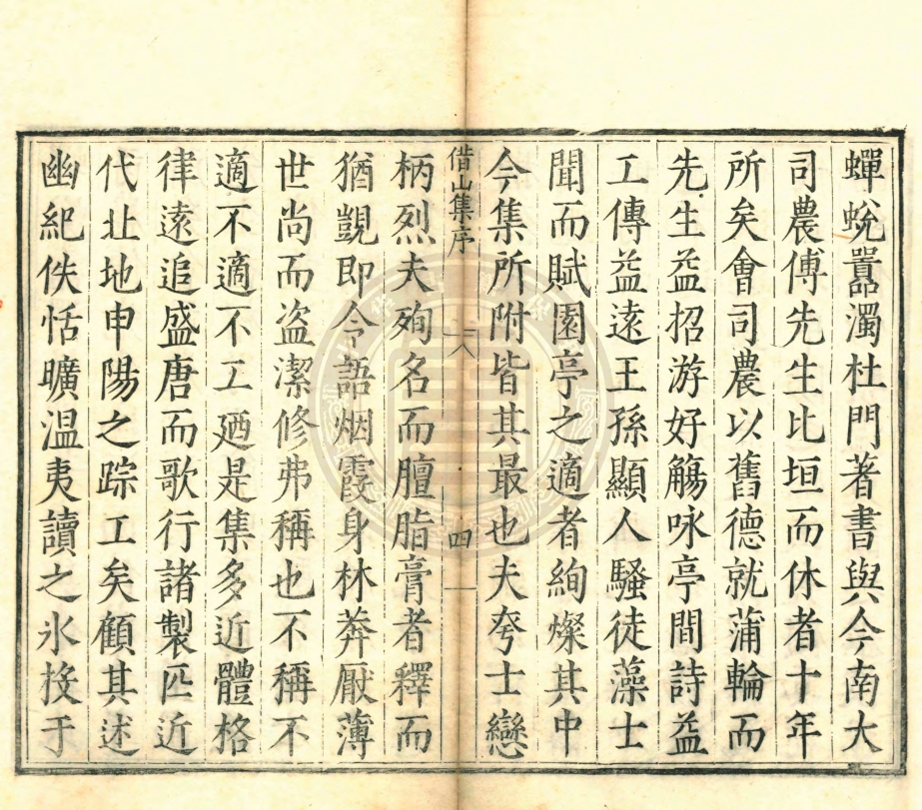 蟬蛻囂濁杜門著書與今南大
司農傅先生比垣而休者十年
所矣會司農以舊德就蒲輪而
先生益招游好觴咏亭間詩益
工傳益遠王孫顯人騷徒藻士
聞而賦園亭之適者絢燦其中
今集所附皆其最也夫夸士戀
借山集序
八
四
柄烈夫殉名而膻脂膏者釋而
猶覬即令語烟霞身林莽厭薄
世尚而盗潔修弗稱也不稱不
適不適不工廼是集多近體格
律遠追盛唐而歌行諸製匹近
代北地申陽之踪工矣顧其述
幽紀佚恬曠温夷讀之氷投于